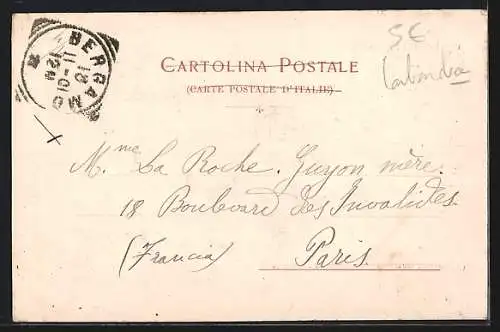 BERGAMO
11-01
12M
S E
CARTOLINA POSTALE
(CARTE POSTALE D'ITALIE)
Mme La Roche. Guyon mère.
18 Boulevard des Invalides
(Francia) Paris.